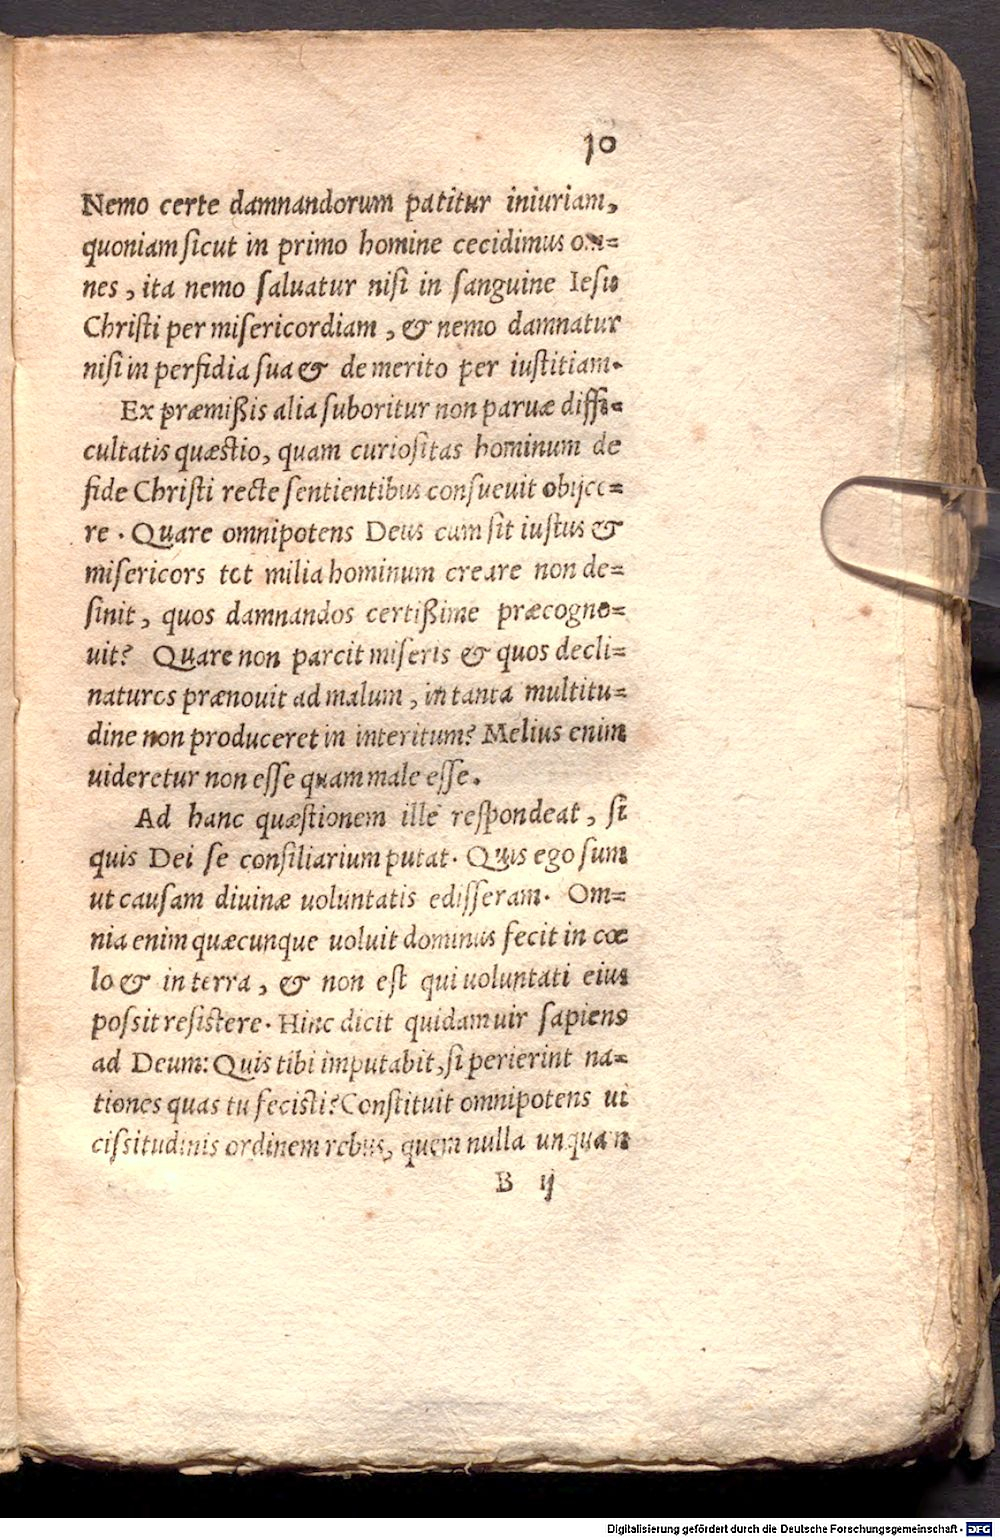 10
Nemo certe damnandorum patitur iniuriam,
quoniam sicut in primo homine cecidimus om=
nes, ita nemo saluatur nisi in sanguine Iesu
Christi per misericordiam, & nemo damnatur
nisi in perfidia sua & demerito per iustitiam.
Ex præmißis alia suboritur non paruæ diffi=
cultatis quæstio, quam curiositas hominum de
fide Christi recte sentientibus consueuit obijce=
re. Quare omnipotens Deus cum sit iustus &
misericors tot milia hominum creare non de=
sinit, quos damnandos certißime præcogno=
uit? Quare non parcit miseris & quos decli=
naturos prænouit ad malum, in tanta multitu=
dine non produceret in interitum? Melius enim
uideretur non esse quam male esse.
Ad hanc quæstionem ille respondeat, si
quis Dei se consiliarium putat. Quis ego sum
ut causam diuinæ uoluntatis edisseram. Om=
nia enim quæcunque uoluit dominus fecit in cœ
lo & in terra, & non est qui uoluntati eius
possit resistere. Hinc dicit quidam uir sapiens
ad Deum: Quis tibi imputabit, si perierint na=
tiones quas tu fecisti? Constituit omnipotens ui
cissitudinis ordinem rebus, quem nulla unquam
B ij
Digitalisierung gefördert durch die Deutsche Forschungsgemeinschaft - DFG